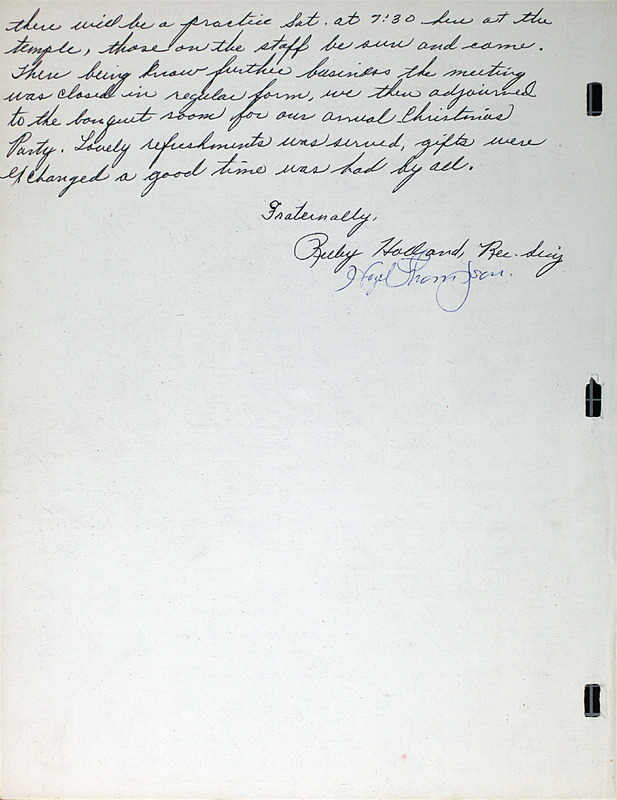 there will be a practice Sat. at 7:30 here at the
temple, those on the staff be sure and come.
There being know further business the meeting
was closed in regular form, we then adjourned
to the banquet room for our anual Christmas
Party. Lovely refreshments was served, gifts were
exchanged a good time was had by all.
Fraternally,
Ruby Holland, Rec. Secy
Thompson.